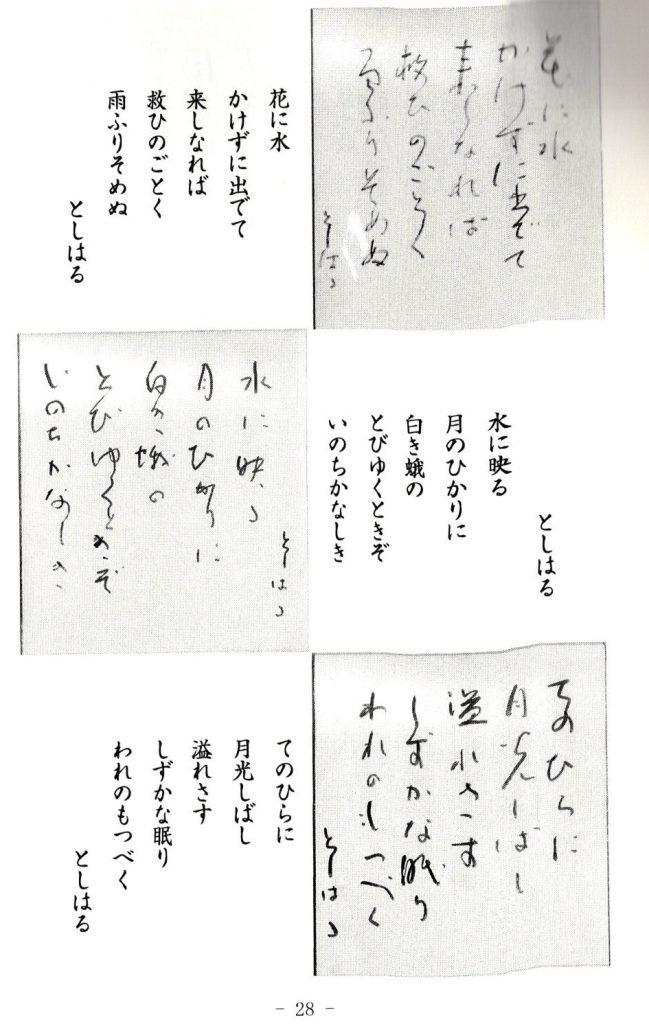 花に水
かけずに出でて
来しなれば
救ひのごとく
雨ふりそめぬ
としはる
花に水
かけずに出でて
来しなれば
救ひのごとく
雨ふりそめぬ
としはる
としはる
水に映る
月のひかりに
白き蛾の
とびゆくときぞ
いのちかなしき
としはる
水に映る
月のひかりに
白き蛾の
とびゆくときぞ
いのちかなしき
てのひらに
月光しばし
溢れさす
しずかな眠り
われのもつべく
としはる
てのひらに
月光しばし
溢れさす
しずかな眠り
われのもつべく
としはる
- 28 -